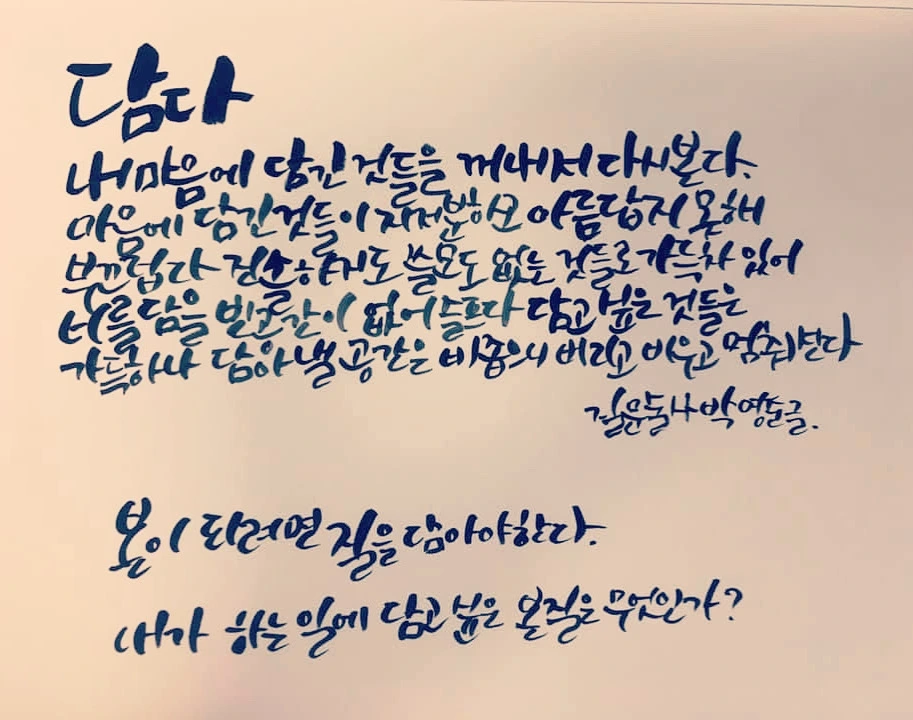 담다
내 마음에 담긴 것들을 꺼내서 다시본다.
마음에 담긴것들이 지저분하고 아름답지 못해
부끄럽다 진소하지도 쓸모도 없는 것들로 가득차 있어
너를 담을 빈공간이 없어 슬프다 담고 싶은 것들은
가득하나 담아낼 공간은 비좁으니 버리고 비우고 멈춰본다
질문술사 박영준 글.
본이 되려면 질을 담아야한다.
내가 하는 일에 담고 싶은 본질은 무엇인가?